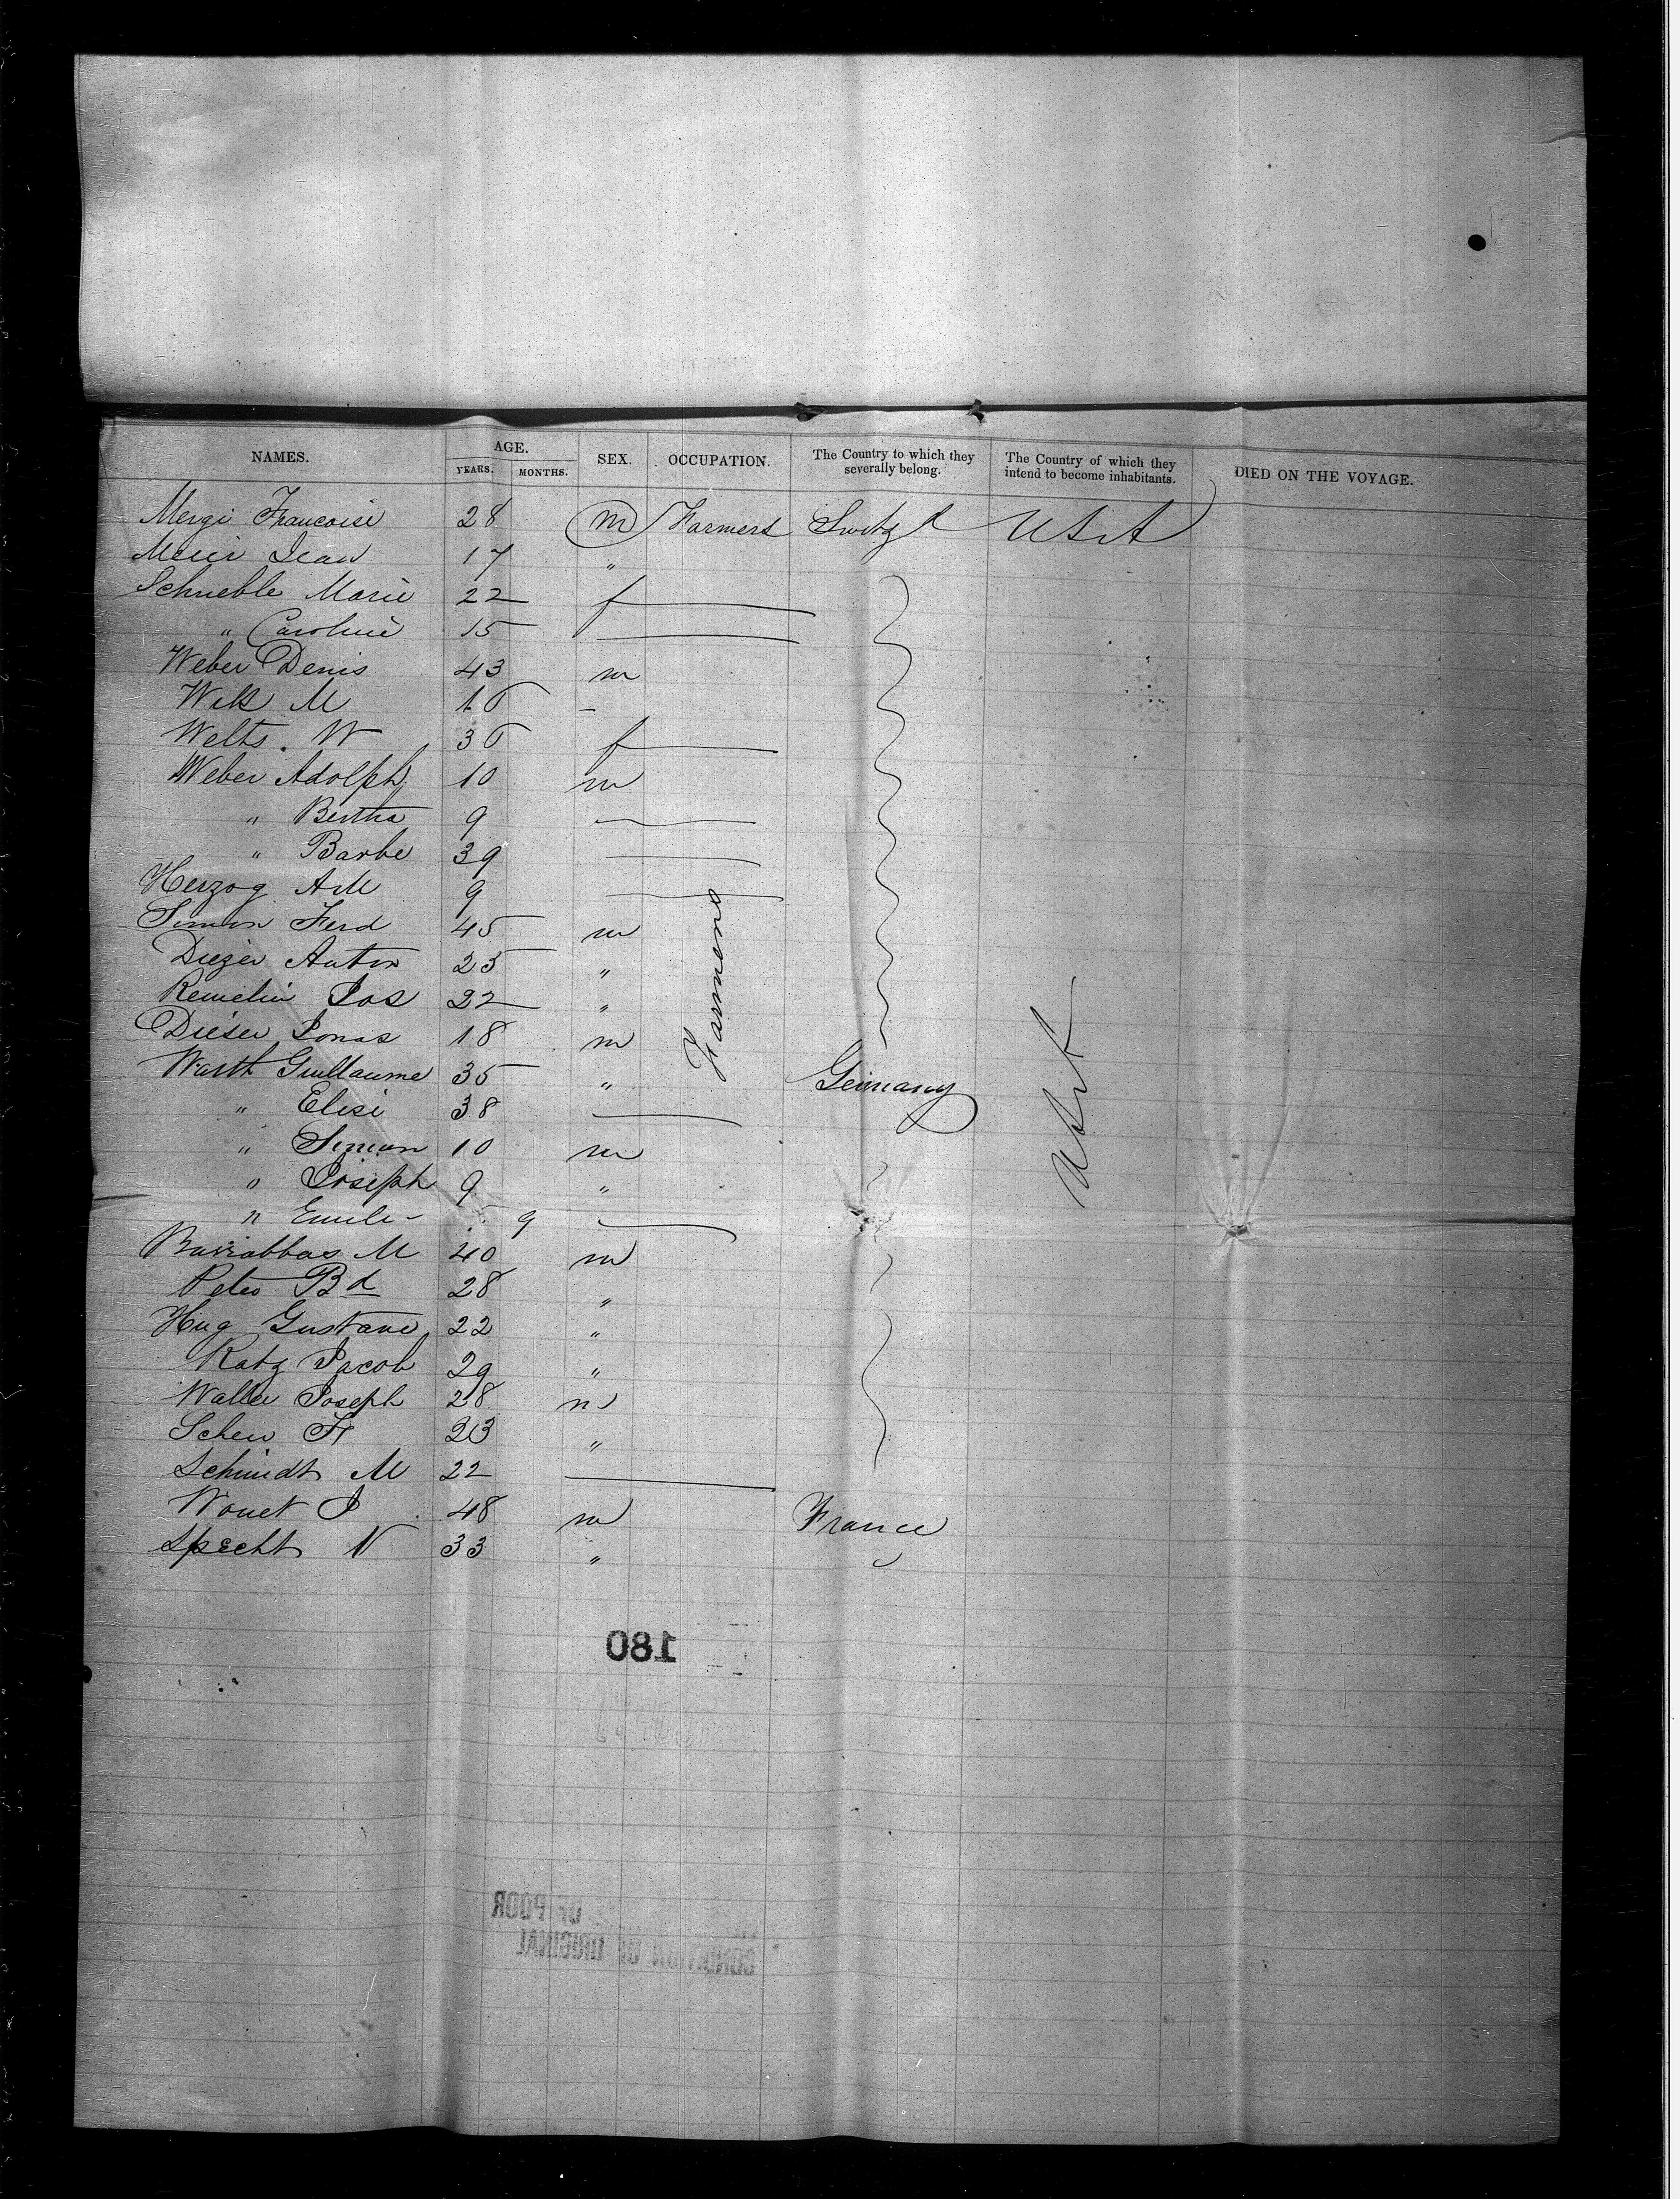 NAMES. AGE. YEARS. MONTHS. SEX. OCCUPATION. The Country to which they severally belong. The Country of which they intend to become inhabitants. DIED ON THE VOYAGE.
Mergi Francoise 28 m Farmers Switzd USA
Meier Jean 17 "
Schueble Marie 22 f
" Caroline 15
Weber Denis 43 m
M
Welts. W 36 f
Weber Adolph 10 m
" Bertha 9
" Barbe 39
Herzog AM 9
Simon Ferd 45 m
Diezer Anton 25 "
Remelin Jos 22 "
Dieser Jonas 18 m
Warth Guillaume 35 " Germany
" Elise 38
" Simon 10 m
" Joseph 9 "
" Emile 9
Barrabbas M 40 m
Peter Bd 28 "
Hug Gustave 22 "
Katz Jacob 29 "
Walter Joseph 28 m
23 "
Schmidt M 22
Wouet J 48 m France
Specht N 33 "
Farmers
USA
180
OF POOR
CONDITION OF ORIGINAL